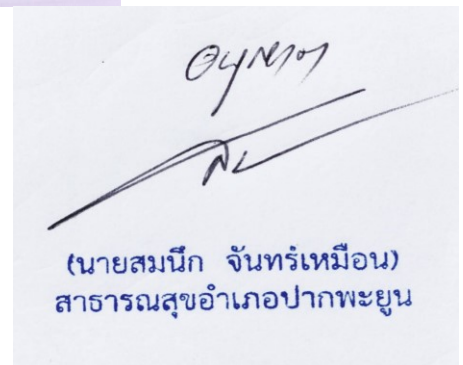 อนุญาต
(นายสมนึก จันทร์เหมือน)
สาธารณสุขอำเภอปากพะยูน